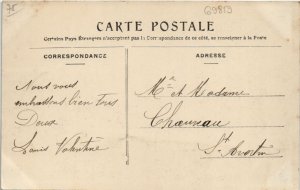 75
G9813
CARTE POSTALE
Certains Pays Étrangers n'acceptant pas la Correspondance de ce côté, se renseigner à la Poste
CORRESPONDANCE
ADRESSE
Nous vous
embrassons bien tous
Deux
Louis Valentine
Mr et Madame
Chauveau
St